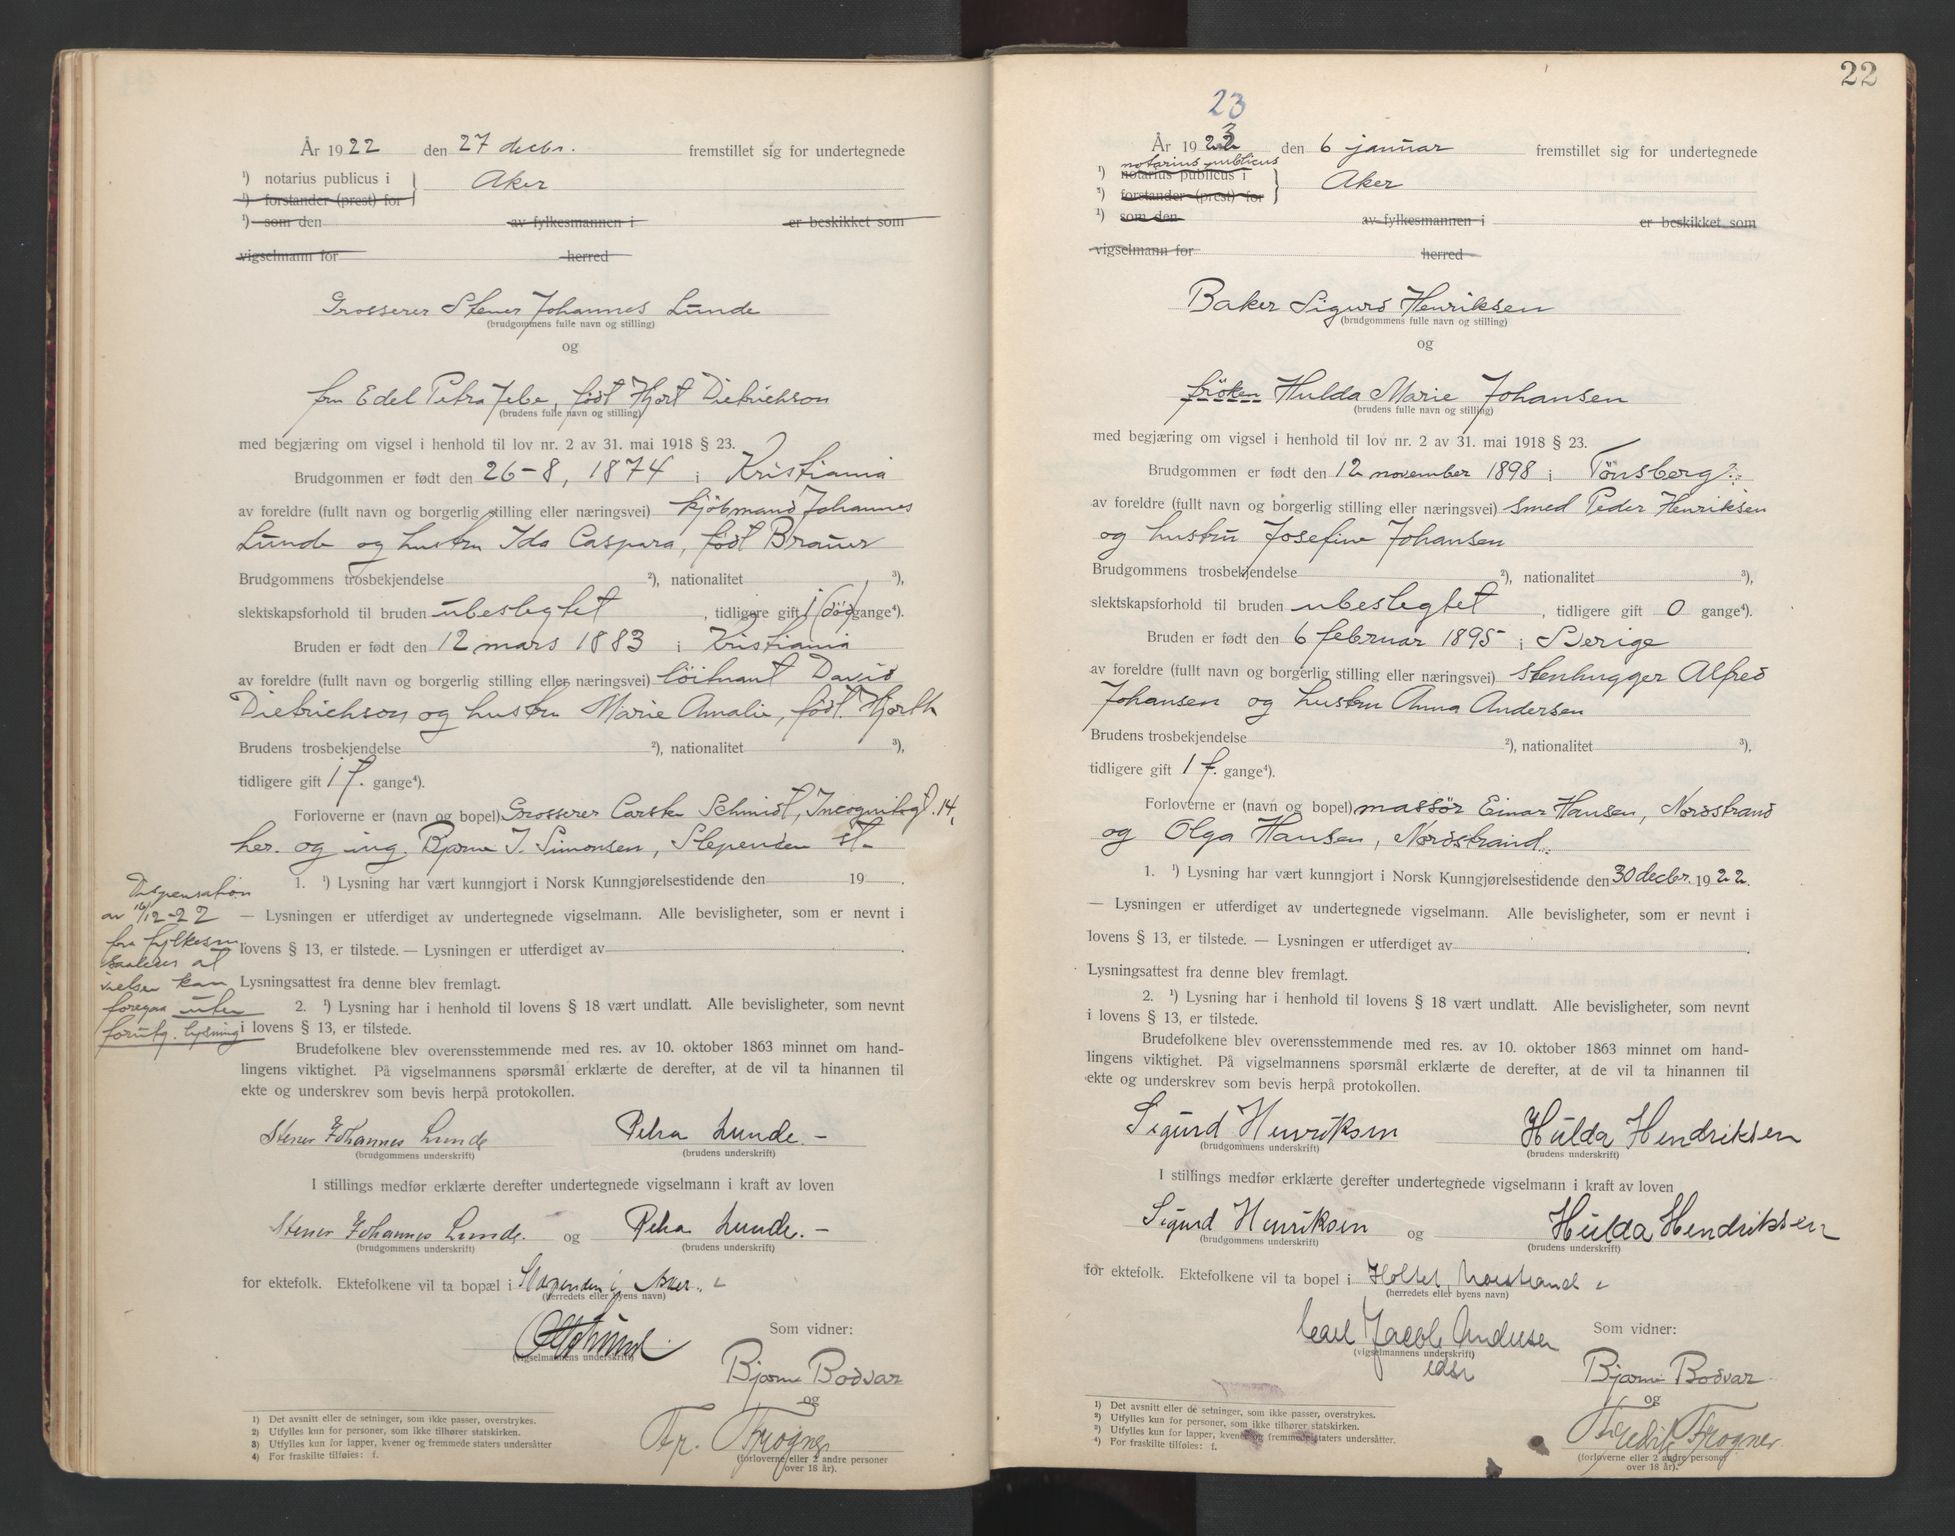 År 1922 den 27 decbr. fremstillet sig for undertegnede
¹) notarius publicus i
Aker
¹) forstander (prest) for
¹) som den av fylkesmannen i er beskikket som
vigselmann for herred
Grosserer Stener Johannes Lunde
(brudgommens fulle navn og stilling)
og
fru Edel Petra Jebe, født Hjort Dietrichson
(brudens fulle navn og stilling)
med begjæring om vigsel i henhold til lov nr. 2 av 31. mai 1918 § 23.
Brudgommen er født den 26-8, 1874 i Kristiania
av foreldre (fullt navn og borgerlig stilling eller næringsvei) kjøbmand Johannes
Lunde og hustru Ida Caspara, født Brauer
Brudgommens trosbekjendelse ²), nationalitet ³),
slektskapsforhold til bruden ubeslegtet, tidligere gift 1 (død) gange⁴).
Bruden er født den 12 mars 1883 i Kristiania
av foreldre (fullt navn og borgerlig stilling eller næringsvei) löitnant David
Dietrichson og hustru Marie Amalie, født Hjorth
Brudens trosbekjendelse ²), nationalitet ³),
tidligere gift 1 f. gange⁴).
Forloverne er (navn og bopel) Grosserer Carsten Schmidt, Incognitogt. 14,
her. og ing. Bjarne J. Simonsen, Slependen st.
1. ¹) Lysning har vært kunngjort i Norsk Kunngjørelsestidende den 19 .
— Lysningen er utferdiget av undertegnede vigselmann. Alle bevisligheter, som er nevnt i
lovens § 13, er tilstede. — Lysningen er utferdiget av .
Lysningsattest fra denne blev fremlagt.
2. ¹) Lysning har i henhold til lovens § 18 vært undlatt. Alle bevisligheter, som nevnt
i lovens § 13, er tilstede.
Dispensation
av 16/12-22
fra fylkesm.
saaledes at
vielsen kan
foregaa uten
forutg. lysning
Brudefolkene blev overensstemmende med res. av 10. oktober 1863 minnet om hand-
lingens viktighet. På vigselmannens spørsmål erklærte de derefter, at de vil ta hinannen til
ekte og underskrev som bevis herpå protokollen.
Stener Johannes Lunde Petra Lunde. -
(brudgommens underskrift) (brudens underskrift)
I stillings medfør erklærte derefter undertegnede vigselmann i kraft av loven
Stener Johannes Lunde. og Petra Lunde. -
(brudgommens underskrift) (brudens underskrift)
for ektefolk. Ektefolkene vil ta bopæl i Slependen i Asker.
(herredets eller byens navn)
Som vidner:
(vigselmannens underskrift)
Bjarne Bodvar
og
Fr. Frogner
(forloverne eller 2 andre personer
over 18 år).
1) Det avsnitt eller de setninger, som ikke passer, overstrykes.
2) Utfylles kun for personer, som ikke tilhører statskirken.
3) Utfylles kun for lapper, kvener og fremmede staters undersåtter
4) For fraskilte tilføies: f.
22
23
År 1922 3 den 6 januar fremstillet sig for undertegnede
notarius publicus
¹) notarius publicus i
Aker
²) forstander (prest) for
¹) som den av fylkesmannen i er beskikket som
vigselmann for herred
Baker Sigurd Henriksen
(brudgommens fulle navn og stilling)
og
frøken Hulda Marie Johansen
(brudens fulle navn og stilling)
med begjæring om vigsel i henhold til lov nr. 2 av 31. mai 1918 § 23.
Brudgommen er født den 12 november 1898 i Tönsberg
av foreldre (fullt navn og borgerlig stilling eller næringsvei) smed Peder Henriksen
og hustru Josefine Johansen
Brudgommens trosbekjendelse ²), nationalitet ³),
slektskapsforhold til bruden ubeslegtet, tidligere gift 0 gange⁴).
Bruden er født den 6 februar 1895 i Sverige
av foreldre (fullt navn og borgerlig stilling eller næringsvei) stenhugger Alfred
Johansen og hustru Anna Andersen
Brudens trosbekjendelse ²), nationalitet ³),
tidligere gift 1 f. gange⁴).
Forloverne er (navn og bopel) massör Einar Hansen, Nordstrand
og Olga Hansen, Nordstrand.
1. ¹) Lysning har vært kunngjort i Norsk Kunngjørelsestidende den 30 decbr. 1922.
— Lysningen er utferdiget av undertegnede vigselmann. Alle bevisligheter, som er nevnt i
lovens § 13, er tilstede. — Lysningen er utferdiget av .
Lysningsattest fra denne blev fremlagt.
2. ¹) Lysning har i henhold til lovens § 18 vært undlatt. Alle bevisligheter, som nevnt
i lovens § 13, er tilstede.
Brudefolkene blev overensstemmende med res. av 10. oktober 1863 minnet om hand-
lingens viktighet. På vigselmannens spørsmål erklærte de derefter, at de vil ta hinannen til
ekte og underskrev som bevis herpå protokollen.
Sigurd Henriksen Hulda Hendriksen
(brudgommens underskrift) (brudens underskrift)
I stillings medfør erklærte derefter undertegnede vigselmann i kraft av loven
Sigurd Henriksen og Hulda Hendriksen
(brudgommens underskrift) (brudens underskrift)
for ektefolk. Ektefolkene vil ta bopel i Holtet, Norstrand
(herredets eller byens navn)
Carl Jacob Andersen Som vidner:
(vigselmannens underskrift)
edsv
Bjarne Bodvar
og
Fredrik Frogner
(forloverne eller 2 andre personer
over 18 år).
¹) Det avsnitt eller de setninger, som ikke passer, overstrykes.
²) Utfylles kun for personer, som ikke tilhører statskirken.
³) Utfylles kun for lapper, kvener og fremmede staters undersåtter.
⁴) For fraskilte tilføies: f.